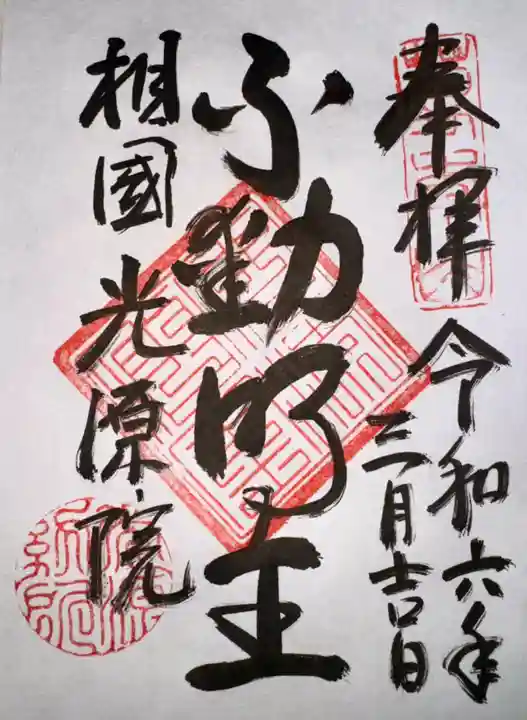 奉拝
令和六年
三月吉日
不動明王
相國 光源院